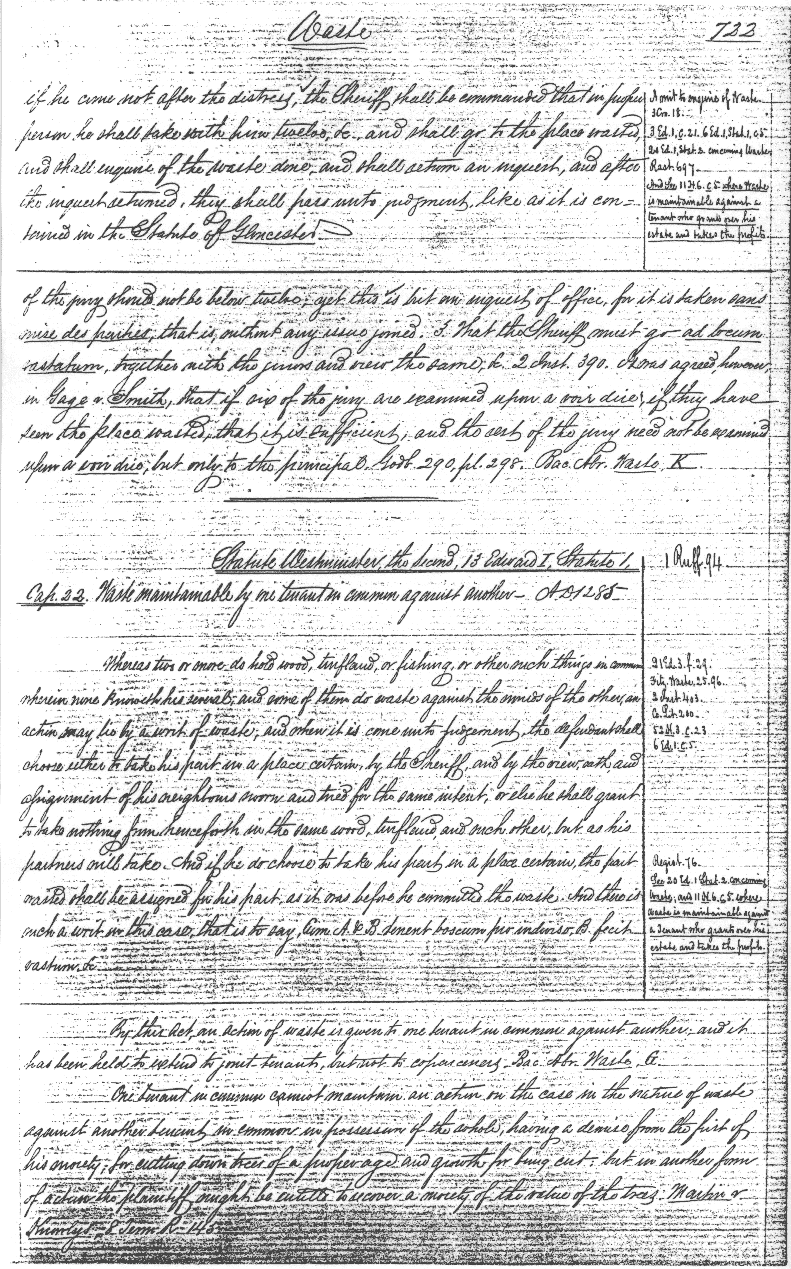 Waste 722
if he come not after the distress, the Sheriff shall be commanded that in proper
person he shall take with him twelve, &c. and shall go to the place wasted,
and shall enquire of the waste done, and shall return an inquest, and after
the inquest returned, they shall pass unto judgment, like as it is con=
tained in the Statute of Glocester.
A writ to enquire of Waste.
3 Ed. 1, c. 21. 6 Ed. 1, Stat. 1, c. 5.
20 Ed. 1, Stat. 2. concerning Waste
Rast. 697
And See 11 H. 6. c. 5. where Waste
is maintainable against a
tenant who grants over his
estate and takes the profits.
of the jury should not be below twelve; yet this is but an inquest of office, for it is taken sans
mise des parties, that is, without any issue joined. 3. That the Sheriff must go ad locum
vastatum, together with the jurors and view the same, &c. 2 Inst. 390. It was agreed however,
in Gage v. Smith, that if six of the jury are examined upon a voir dire, if they have
seen the place wasted, that it is sufficient, and the rest of the jury need not be examined
upon a voir dire, but only to the principal. Godb. 290, pl. 298. Bac. Abr. Waste, K.
Statute Westminster, the second, 13 Edward I, Statute 1,
Cap. 22. Waste maintainable by one tenant in common against another – AD 1285
1 Ruff 94.
Whereas two or more do hold wood, turfland, or fishing, or other such things in common
wherein none knoweth his several, and some of them do waste against the minds of the other, an
action may lie by a writ of waste; and when it is come unto judgement, the defendant shall
choose either to take his part in a place certain, by the Sheriff, and by the view, oath and
assignment of his neighbours sworn and tried for the same intent, or else he shall grant
to take nothing from henceforth in the same wood, turfland and such other, but as his
partners will take. And if he do choose to take his part in a place certain, the part
wasted shall be assigned for his part, as it was before he committed the waste. And there is
such a writ in this case, that is to say, Cum A. & B. tenent boscum pro indiviso, B. fecit
vastum, &c.
21 Ed. 3. f. 29.
Fitz. Waste. 25. 96.
2 Inst. 403.
Co. Lit. 200.
52 H. 3. c. 23
6 Ed. 1. c. 5.
Regist. 76.
See 20 Ed. 1 Stat. 2. concerning
Waste, and 11 H. 6. c. 5. where
waste is maintainable against
a tenant who grants over his
estate and takes the profits.
By this Act, an action of waste is given to one tenant in common against another; and it
has been held to extend to joint tenants, but not to coparceners. Bac. Abr. Waste, G.
One tenant in common cannot maintain an action on the case in the nature of waste
against another tenant in common in possession of the whole, having a demise from the first of
his moiety, for cutting down trees of a proper age and growth for being cut: but in another form
of action the plaintiff ought be entitle to recover a moiety of the value of the trees. Martin v
8 Term R. 145